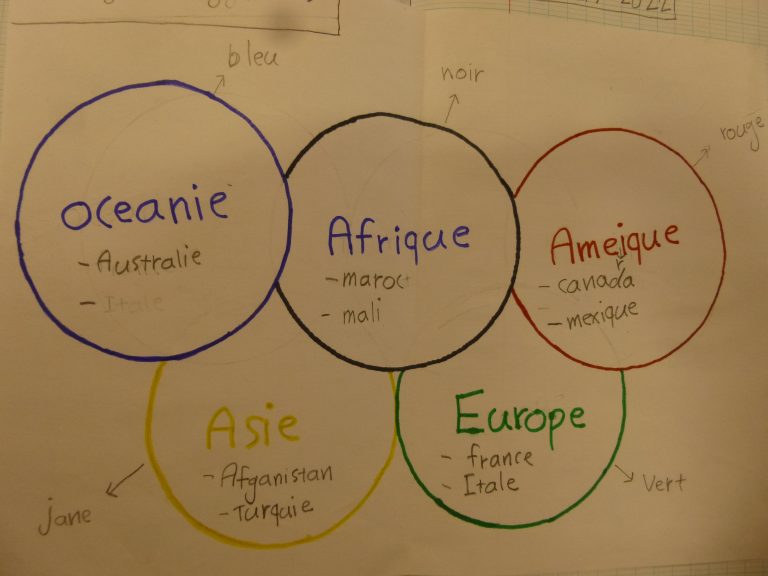 2022
bleu
noir
rouge
oceanie
- Australie
- Itale
Afrique
- maroc
- mali
Ameique
r
- canada
- mexique
Asie
- Afganistan
- Turquie
jane
Europe
- france
- Itale
vert